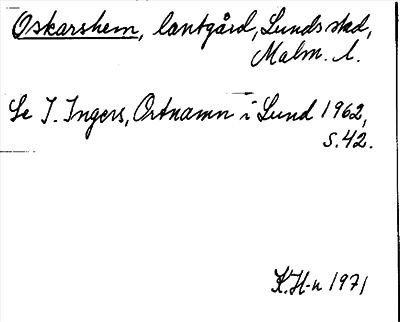 Oskarshem, lantgård, Lunds stad,
Malm. l.
Se I. Ingers, Ortnamn i Lund 1962,
s. 42.
K.H-n 1971